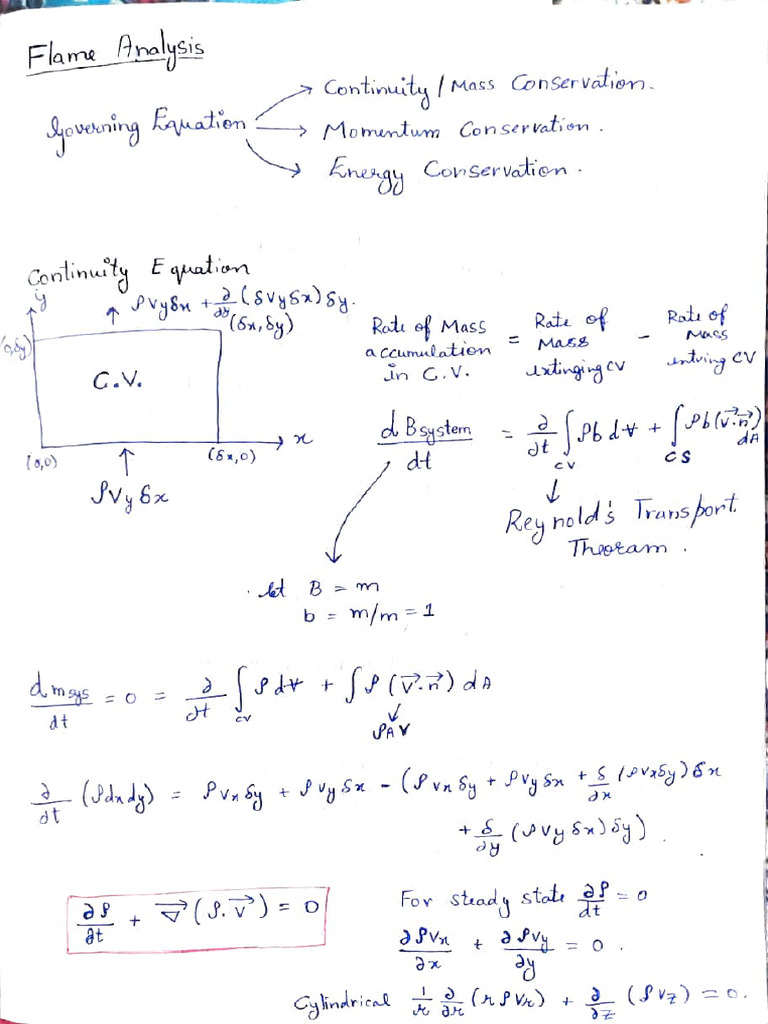 Flame Analysis
Governing Equation
→ Continuity / Mass Conservation.
→ Momentum Conservation.
→ Energy Conservation.
Continuity Equation
y
↑ ρVyδx + ∂/∂y (δVyδx) δy.
(0,δy) (δx, δy)
C.V.
(0,0) (δx,0) x
↑
ρVyδx
Rate of Mass accumulation in C.V. = Rate of Mass extinging CV − Rate of Mass entring CV
dBsystem/dt = ∂/∂t ∫CV ρb d∀ + ∫CS ρb(v⃗.n⃗) dA
Reynold's Transport
Theoram.
let B = m
b = m/m = 1
dmsys/dt = 0 = ∂/∂t ∫cv ρd∀ + ∫ρ (V⃗.n⃗) dA
ρAV
∂/∂t (ρdxdy) = ρVxδy + ρVyδx − (ρVxδy + ρVyδx + δ/∂x (ρVxδy) δx
+ δ/∂y (ρVyδx) δy).
∂ρ/∂t + ∇⃗ (ρ.V⃗) = 0
For steady state ∂ρ/dt = 0
∂ρVx/∂x + ∂ρVy/∂y = 0.
Cylindrical 1/r ∂/∂r (rρVr) + ∂/∂z (ρVz) = 0.